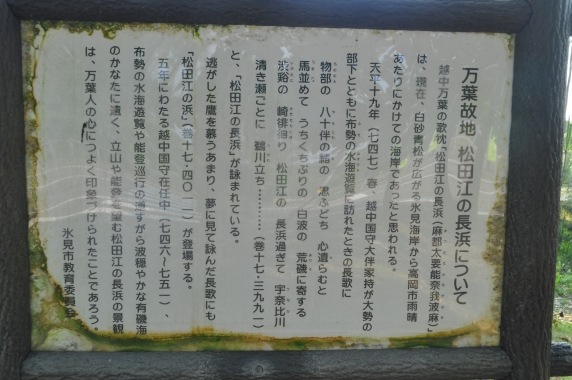 万葉故地 松田江の長浜について
越中万葉の歌枕「松田江の長浜(麻都太要能奈我波麻)」
は、現在、白砂青松が広がる氷見海岸から高岡市雨晴
あたりにかけての海岸であったと思われる。
天平十九年(七四七)春、越中国守大伴家持が大勢の
部下とともに布勢の水海遊覧に訪れたときの長歌に
物部の 八十伴の緒の 思ふどち 心遣らむと
馬並めて うちくちぶりの 白波の 荒磯に寄する
渋谿の 崎徘徊り 松田江の 長浜過ぎて 宇奈比川
清き瀬ごとに 鵜川立ち…………(巻十七・三九九一)
と、「松田江の長浜」が詠まれている。
逃がした鷹を慕うあまり、夢に見て詠んだ長歌にも
「松田江の浜」(巻十七・四〇一一)が登場する。
五年にわたる越中国守在任中(七四六〜七五一)、
布勢の水海遊覧や能登巡行の道すがら波穏やかな有磯海
のかなたに遠く、立山や能登を望む松田江の長浜の景観
は、万葉人の心につよく印象づけられたことであろう。
氷見市教育委員会